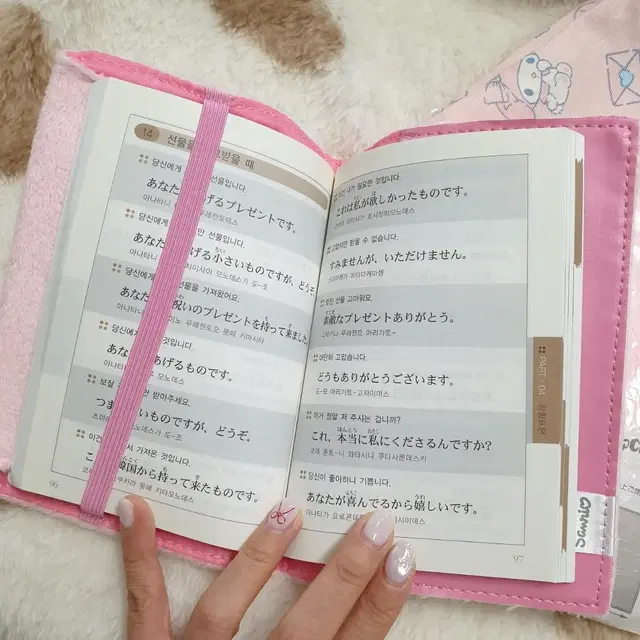 14 선물을 받을 때
당신에게 선물입니다.
あなた げるプレゼントです。
푸레젠토데스
당신에게 만 선물입니다.
ちい
あなた げる小さいものですが、どうぞ
아나타니 모노데스가 도-조
당신에게 선물을 가져왔어요.
いわ も き
あなた 祝いのプレゼントを持って来ました
아나타니
당신에게 것입니다.
あな あげるものです。
아나타니 모노데스
보잘 만 받아주세요.
つま いものですが、どうぞ。
도-조
이건 서 가져온 것입니다.
こ 韓国から持って来たものです。
카라 못떼 키타모노데스
96
내가 필요한 것입니다.
わたし ほ
これは私が欲しかったものです。
코레와 와타시가
받을 수 없습니다.
すみませんが、いただけません。
이타다케마셍
선물 고마워요.
すてき
素敵なプレゼントありがとう。
스테키나 푸레젠토 아리가토-
대단히 고맙습니다.
どうもありがとうございます。
도-모 아리가토-고자이마스
이거 정말 저 주시는 겁니까?
ほんとう わたし
これ、本当に私にくださるんですか?
코레 혼토-니 와타시니 쿠다사룬데스카
당신이 좋아하니 기쁩니다.
よろこ うれ
あなたが喜んでるから嬉しいです。
아나타가 요로콘데 시이데스
97
PART 04
Sanrio